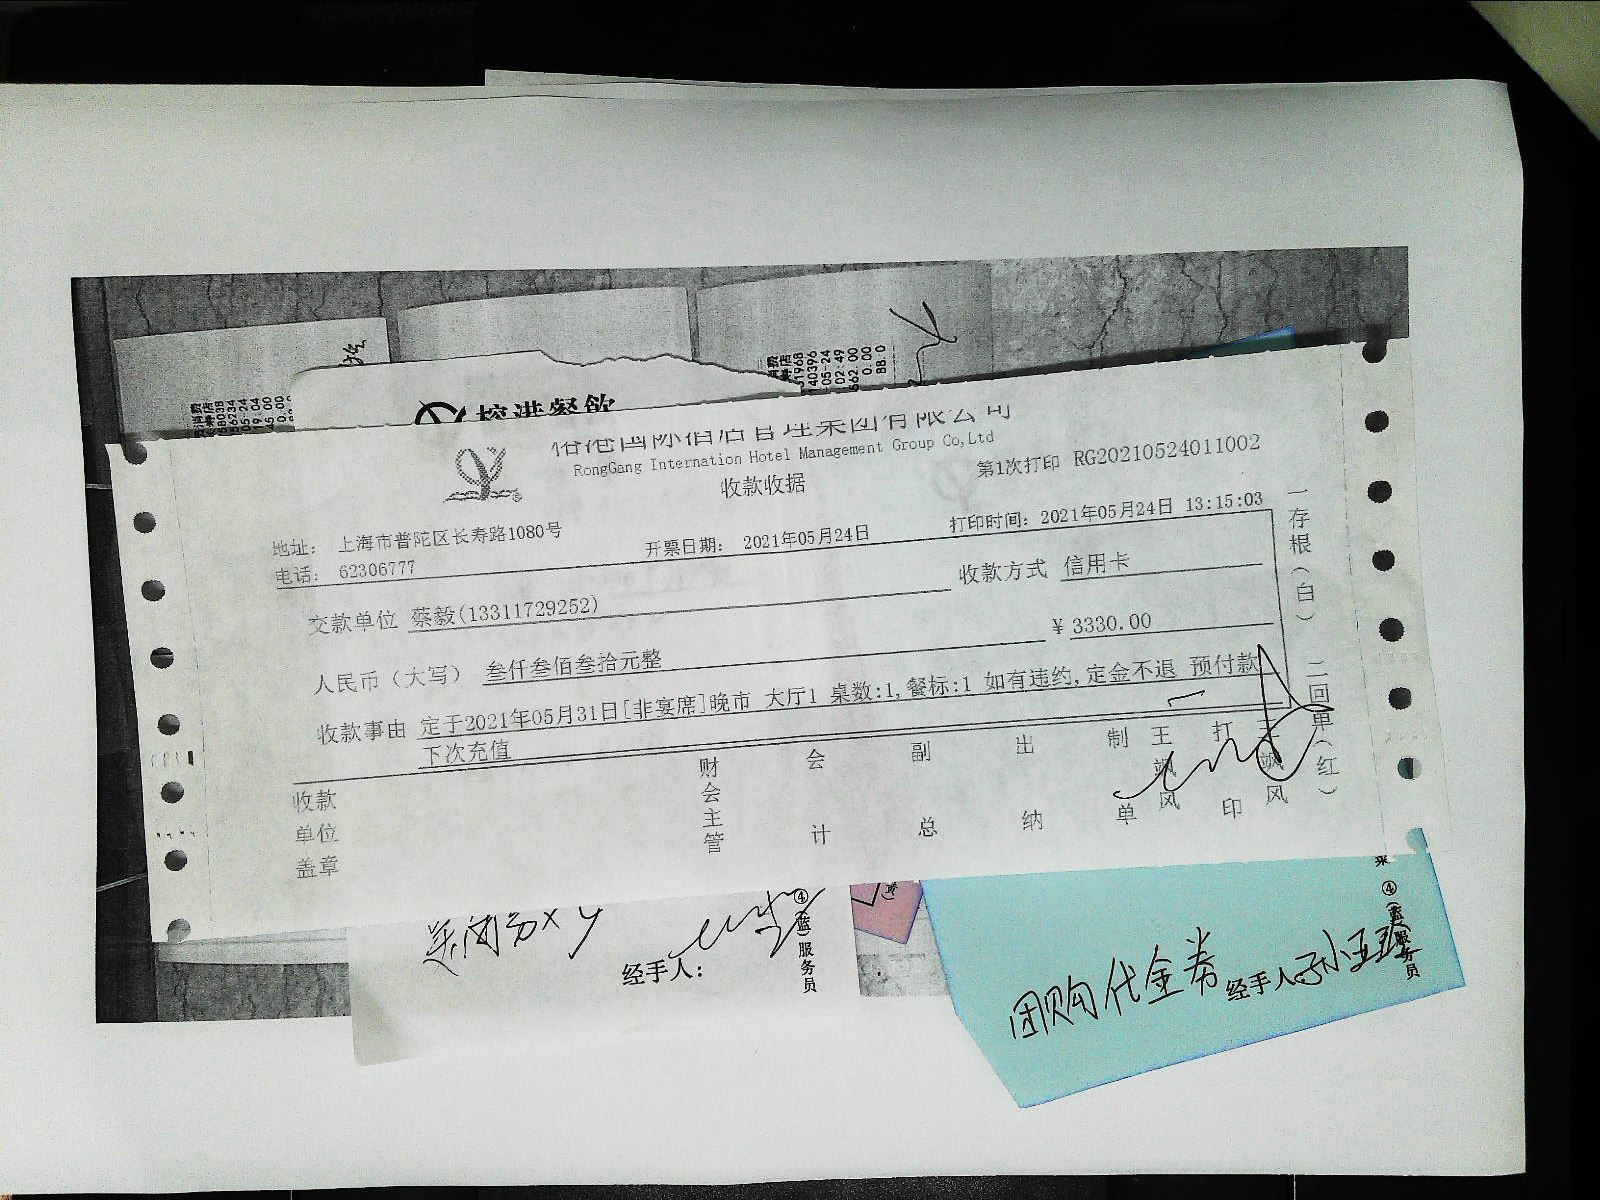 榕港餐饮
榕港国际酒店管理集团有限公司
RongGang Internation Hotel Management Group Co,Ltd
收款收据
第1次打印 RG20210524011002
地址： 上海市普陀区长寿路1080号
电话： 62306777
开票日期： 2021年05月24日
打印时间：2021年05月24日 13:15:03
交款单位 蔡毅(13311729252)
收款方式 信用卡
人民币（大写） 叁仟叁佰叁拾元整
¥ 3330.00
收款事由 定于2021年05月31日[非宴席]晚市 大厅1 桌数:1,餐标:1 如有违约,定金不退 预付款
下次充值
收款单位盖章
财会主管
会计
副总
出纳
制单
王飒风
打印
王飒风
一存根（白） 二回单（红）
经手人：
④(蓝)服务员
团购代金券
经手人
④(蓝)服务员